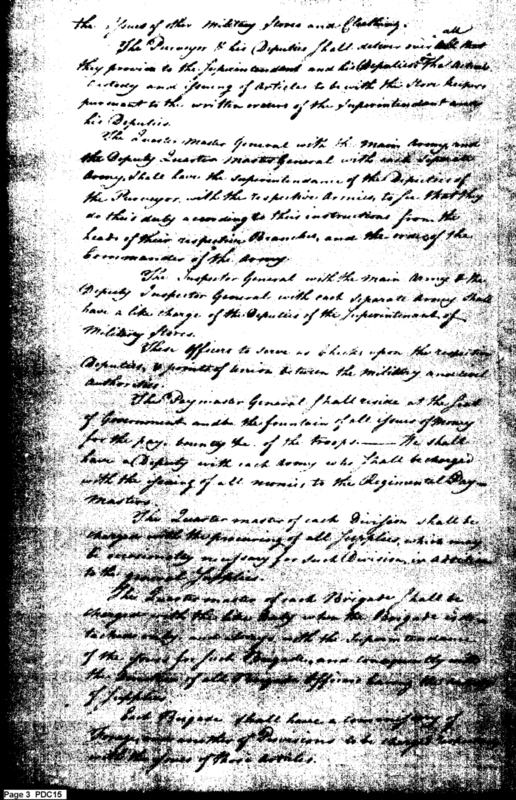 the issues of other Military Stores and Cloathing.
all
The Purveyor & his Deputies shall deliver over that
they provide to the Superintendent and his Deputies The actual
Custody and issuing of Articles to be with the Store keepers
pursuant to the written orders of the Superintendent and
his Deputies.
The Quarter Master General with the main Army and
the Deputy Quarter Master General with each separate
Army, shall have the superintendance of the Deputies of
the Purveyor, with the respective Armies, to see that they
do their duty according to their instructions from the
heads of their respective Branches, and the orders of the
Commander of the Army.
The Inspector General with the main Army & the
Deputy Inspector General with each separate Army shall
have a like charge of the Deputies of the Superintendant of
Military Stores.
These Officers to serve as Checks upon the respective
Deputies, & points of union between the Military and civil
Authorities.
The Paymaster General shall reside at the Seat
of Government and be the fountain of all issues of Money
for the pay bounty &c. of the troops. — He shall
have a Deputy with each Army who shall be charged
with the issuing of all monies to the Regimental Pay-
Masters.
The Quarter master of each Division shall be
charged with the procuring of all Supplies, which may
be occasionally necessary for such Division, in addition
to the general Supplies.
The Quarter master of each Brigade shall be
charged with the like duty when the Brigade is
and always with the Superintendance
of the issues for such Brigade, and consequently with
the of all Officers having the
of supplies.
Each Brigade shall have a commissary of
forage, and another of Provisions to be charged
with the issues of those articles.
Page 3 PDC15